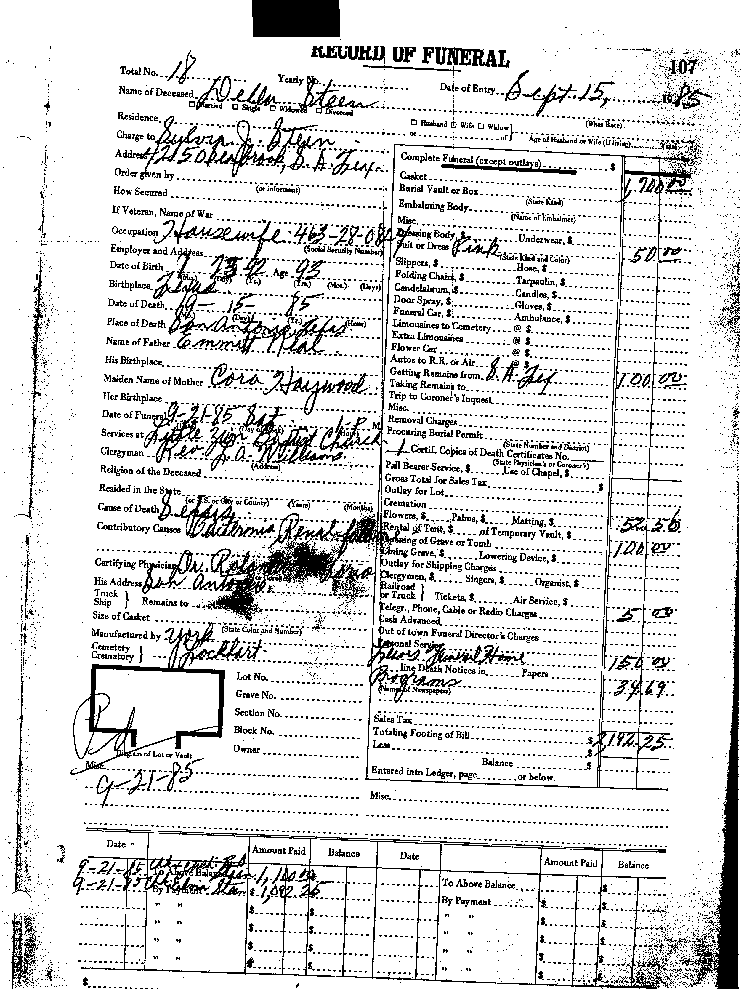 RECORD OF FUNERAL
107
Total No. 18 Yearly No.
Name of Deceased Della Steen Date of Entry Sept. 15, 1985
Married Single Widowed Divorced
Residence Husband Wife Widow or (What Race)
Charge to Sylvia J. Steen Age of Husband or Wife (if living) Years
Address S. A. Tex.
Order given by (or informant)
How Secured
If Veteran, Name of War
Occupation Housewife 463-28-
Employer and Address (Social Security Number)
Date of Birth 23 92 Age 93
(Mo.) (Day) (Yr.) (Yrs.) (Mos.) (Days)
Birthplace Texas
Date of Death 9-15-85
Place of Death San Antonio, Texas
Name of Father Emmitt Neal
His Birthplace
Maiden Name of Mother Cora Haywood
Her Birthplace
Date of Funeral 9-21-85 Sat 1 P. M.
Services at Little Zion Baptist Church
Clergyman Rev. J. A. Williams
(Address)
Religion of the Deceased
Resided in the State
(or U.S. or City or County) (Years) (Months)
Cause of Death Sepsis
Contributory Causes Renal
Certifying Physician Dr.
His Address San Antonio
Truck Ship Remains to
Size of Casket
(State Color and Number)
Manufactured by York
Cemetery Crematory Lockhart
Lot No.
Grave No.
Section No.
Block No.
Owner
Diagram of Lot or Vault
Pd
Misc.
9-21-85
Complete Funeral (except outlays) $
Casket 1,700.00
Burial Vault or Box
(State Kind)
Embalming Body
(Name of Embalmer)
Misc.
Dressing Body, $ Underwear, $
Suit or Dress Pink 50.00
(State Kind and Color)
Slippers, $ Hose, $
Folding Chairs, $ Tarpaulin, $
Candelabrum, $ Candles, $
Door Spray, $ Gloves, $
Funeral Car, $ Ambulance, $
Limousines to Cemetery @ $
Extra Limousines @ $
Flower Car @ $
Autos to R.R. or Air @ $
Getting Remains from S. A. Tex 100.00
Taking Remains to
Trip to Coroner's Inquest
Misc.
Removal Charges
Procuring Burial Permit
(State Number and District)
1 Certif. Copies of Death Certificates No.
(State Physician's or Coroner's)
Pall Bearer Service, $ Use of Chapel, $
Gross Total for Sales Tax $
Outlay for Lot
Cremation
Flowers, $ Palms, $ Matting, $ 52.50
Rental of Tent, $ of Temporary Vault, $
Opening of Grave or Tomb 100.00
Lining Grave, $ Lowering Device, $
Outlay for Shipping Charges
Clergymen, $ Singers, $ Organist, $
Railroad or Truck Tickets, $ Air Service, $
Telegr., Phone, Cable or Radio Charges 5.00
Cash Advanced
Out of town Funeral Director's Charges
Personal Service
Funeral Home 150.00
line Death Notices in Papers
Programs 34.69
(Names of Newspapers)
Sales Tax
Totaling Footing of Bill $2,192.25
Less $
Balance $
Entered into Ledger, page or below.
Misc.
Date Amount Paid Balance Date Amount Paid Balance
9-21-85 To Above Balance 1,100.00 To Above Balance $
9-21-85 By Payment Steen $ 1,092.25 By Payment $
" " $ $ " " $
" " $ $ " " $
" " $ $ " " $
" " $ $ " " $
$